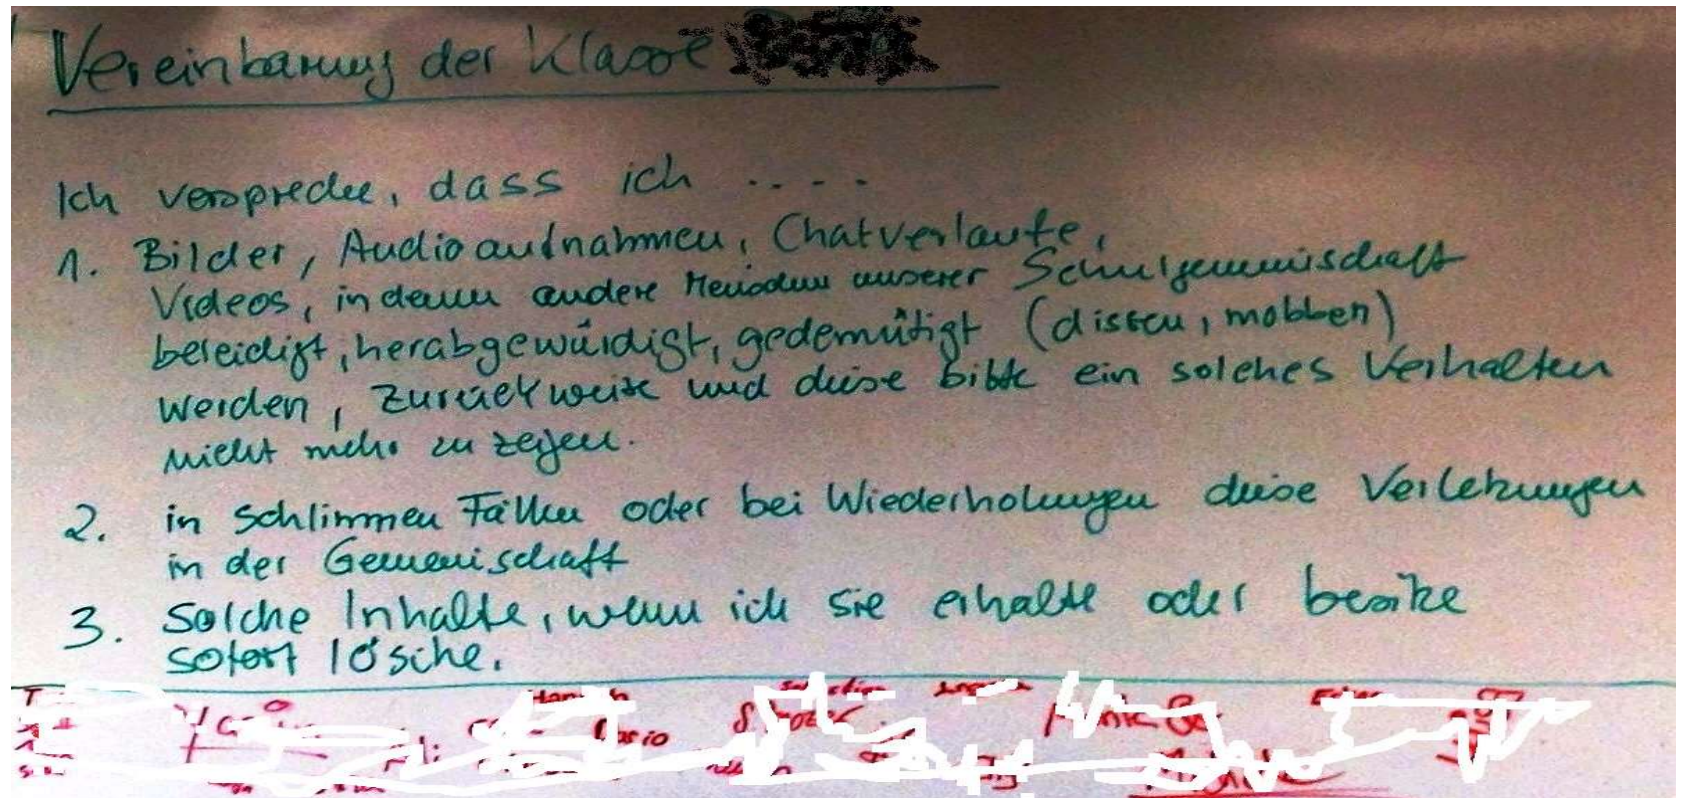 Vereinbarung der Klasse
Ich verspreche, dass ich ....
1. Bilder, Audioaufnahmen, Chatverläufe,
Videos, in denen andere Menschen unserer Schulgemeinschaft
beleidigt, herabgewürdigt, gedemütigt (dissen, mobben)
werden, zurückweise und diese bitte ein solches Verhalten
nicht mehr zu zeigen.
2. in schlimmen Fällen oder bei Wiederholungen diese Verletzungen
in der Gemeinschaft
3. Solche Inhalte, wenn ich sie erhalte oder besitze
sofort lösche.